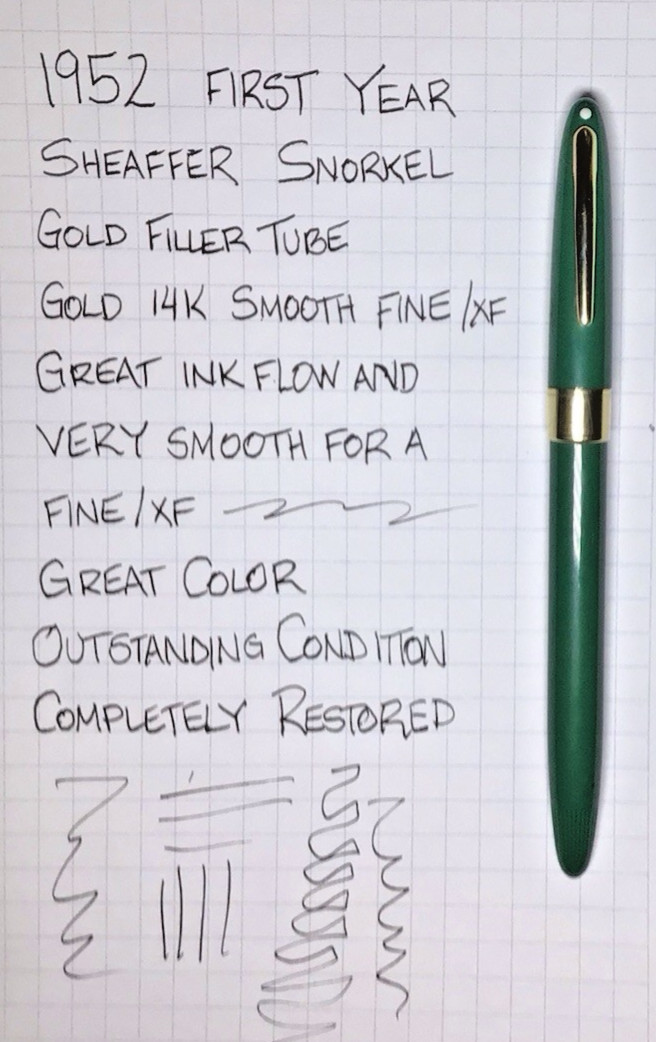 1952 FIRST YEAR
SHEAFFER SNORKEL
GOLD FILLER TUBE
GOLD 14K SMOOTH FINE/XF
GREAT INK FLOW AND
VERY SMOOTH FOR A
FINE/XF
GREAT COLOR
OUTSTANDING CONDITION
COMPLETELY RESTORED